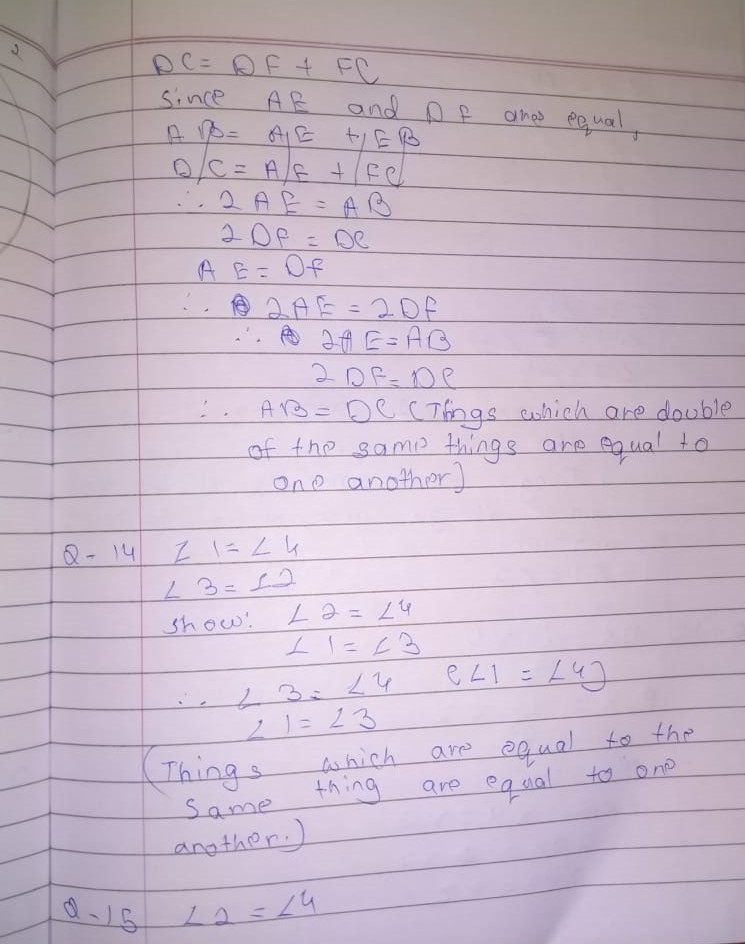 2
DC = DF + FC
Since AE and DF are equal,
AB = AE + EB
DC = AE + FC
∴ 2AE = AB
2DF = DC
AE = DF
∴ 2AE = 2DF
∴ 2AE = AB
2DF = DC
∴ AB = DC (Things which are double
of the same things are equal to
one another)
Q-14 ∠1 = ∠4
∠3 = ∠2
show: ∠2 = ∠4
∠1 = ∠3
∴ ∠3 = ∠4 (∠1 = ∠4)
∠1 = ∠3
(Things which are equal to the
same thing are equal to one
another.)
Q-15 ∠2 = ∠4